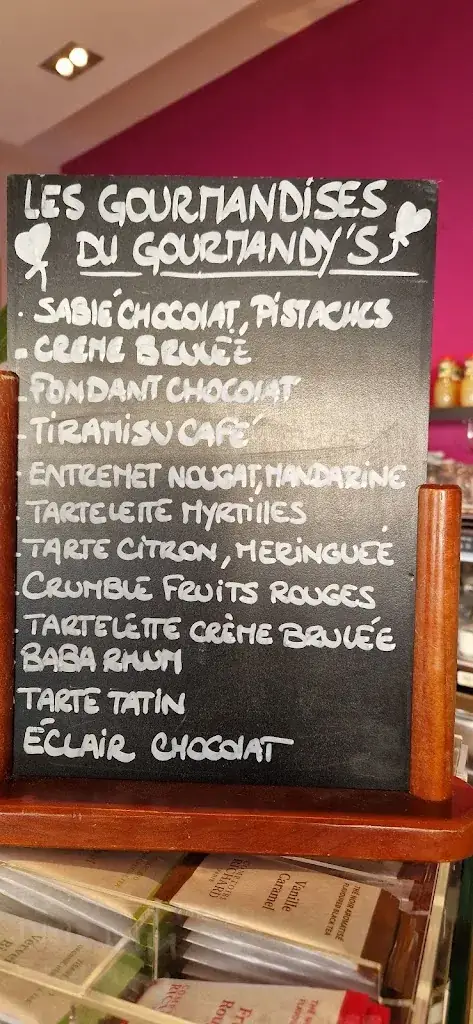 LES GOURMANDISES
DU GOURMANDY'S
· SABLÉ CHOCOLAT, PISTACHES
- CREME BRULÉE
- FONDANT CHOCOLAT
- TIRAMISU CAFÉ
- ENTREMET NOUGAT, MANDARINE
- TARTELETTE MYRTILLES
- TARTE CITRON, MERINGUÉE
· CRUMBLE FRUITS ROUGES
· TARTELETTE CRÈME BRULÉE
BABA RHUM
TARTE TATIN
ÉCLAIR CHOCOLAT
COMPTOIRS
RICHARD
Vanille
Caramel
THÉ NOIR AROMATISÉ
FLAVOURED BLACK TEA